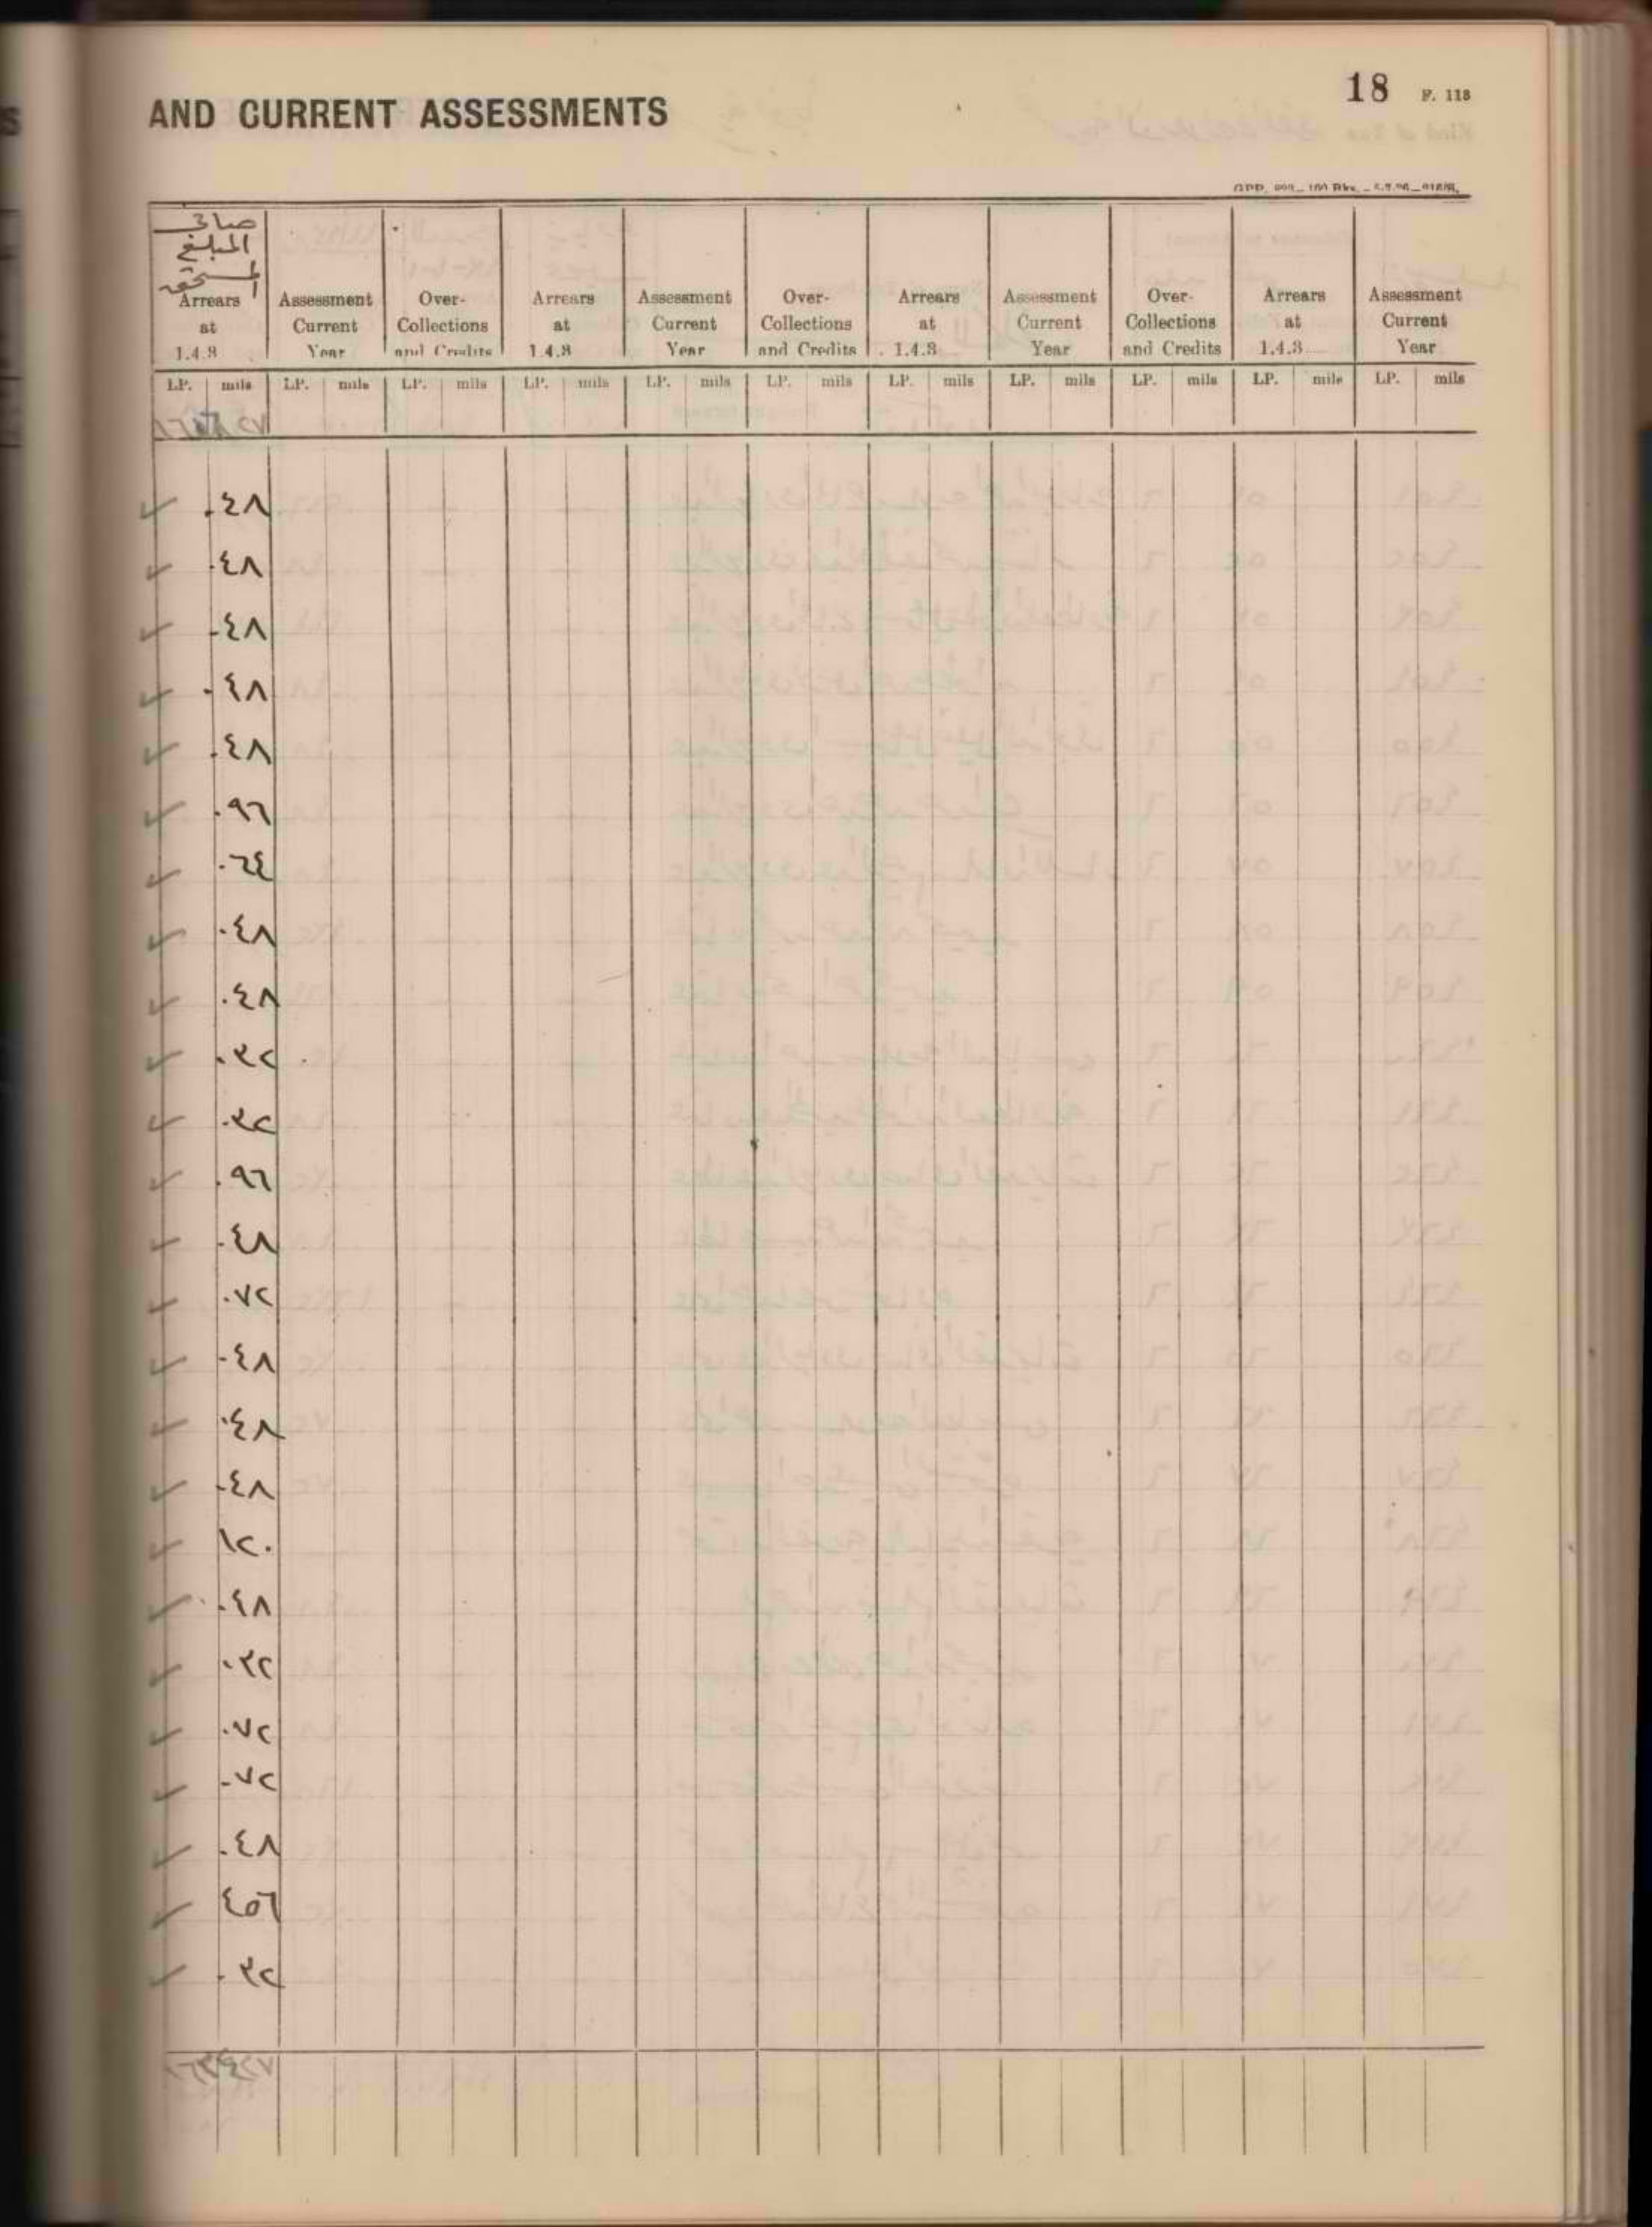 18 F. 118
AND CURRENT ASSESSMENTS
صافي
المبلغ
المستحق
Arrears at 1.4.3 Assessment Current Year Over-Collections and Credits Arrears at 1.4.3 Assessment Current Year Over-Collections and Credits Arrears at 1.4.3 Assessment Current Year Over-Collections and Credits Arrears at 1.4.3 Assessment Current Year
LP. mils LP. mils LP. mils LP. mils LP. mils LP. mils LP. mils LP. mils LP. mils LP. mils LP. mils
٠٤٨
٠٤٨
٠٤٨
٠٤٨
٠٤٨
٠٩٦
٠٦٤
٠٤٨
٠٤٨
٠٣٢
٠٣٢
٠٩٦
٠٤٨
٠٧٢
٠٤٨
٠٤٨
٠٤٨
١٢٠
٠٤٨
٠٣٢
٠٧٢
٠٧٢
٠٤٨
٤٥٦
٠٣٢